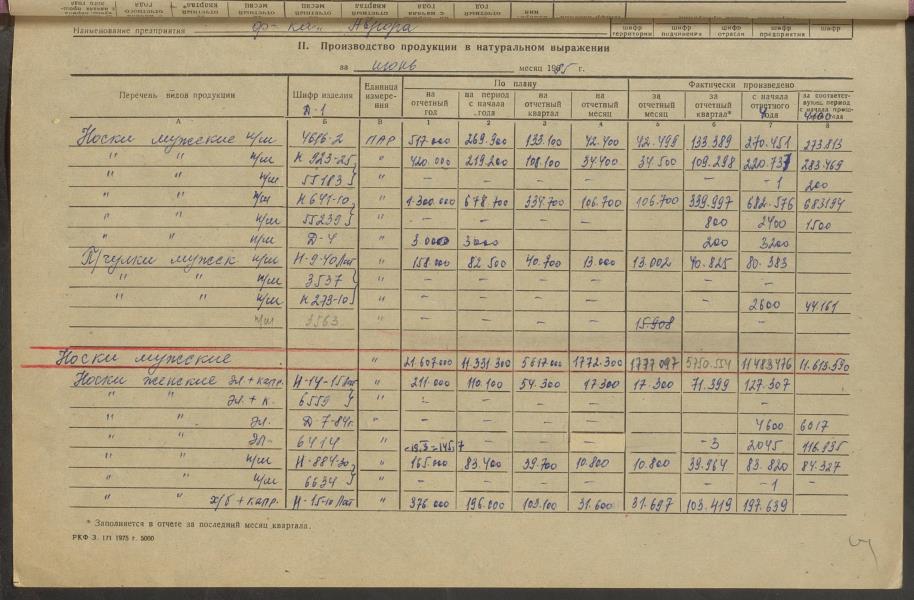 Наименование предприятия ф-ка „Аврора шифр территории шифр подчинения шифр отрасли шифр предприятия шифр
II. Производство продукции в натуральном выражении
за июнь месяц 1975 г.
Перечень видов продукции Шифр изделия Единица измерения По плану Фактически произведено
Д-1 на отчетный год на период с начала года на отчетный квартал на отчетный месяц за отчетный месяц за отчетный квартал* с начала отчетного года за соответствующ. период с начала прошлого года
А Б В 1 2 3 4 5 6 7 8
Носки мужские п/ш 4616-2 ПАР 517.000 269.300 133.100 42.400 42.499 133.389 270.451 273.813
" " п/ш Н 923-25 " 420.000 219.200 108.100 34.400 34.500 109.298 220.737 283.469
" " п/ш 55183 " — — — — — -1 200
" " п/ш Н 641-10 " 1.300.000 678.700 334.700 106.700 106.700 339.997 682.576 683194
" " п/ш 55239 " — — — — 800 2400 1500
" " п/ш Д-4 " 3.000 3000 200 3200
П/чулки мужск п/ш Н-9-40 " 158.000 82.500 40.700 13.000 13.002 40.825 80.383
" " п/ш 3537 " — — — — — — —
" " п/ш Н 273-10 " — — — — — 2600 44.161
п/ш 3563 15.908 —
Носки мужские " 21.607.000 11.331.300 5617.000 1772.300 1777.097 5750.554 11488476 11.613.590
Носки женские эл+капр. Н-14-15 " 211.000 110.100 54.300 17.300 17.300 71.399 127.307
" " эл.+к. 6559 " — — — — —
" " эл. Д-7-84г. " — — — — 4600 6017
" " эл. 6414 " — — -3 2045 116.935
" " п/ш Н-884-30 " 165.000 83.400 39.700 10.800 10.800 39.964 83.820 84.327
" " п/ш 6634 " — — — — — — -1 —
" " х/б+капр. Н-15-10 " 376.000 196.000 103.100 31.600 31.697 103.419 197.639
* Заполняется в отчете за последний месяц квартала.
РКФ З. 171 1975 г. 5000